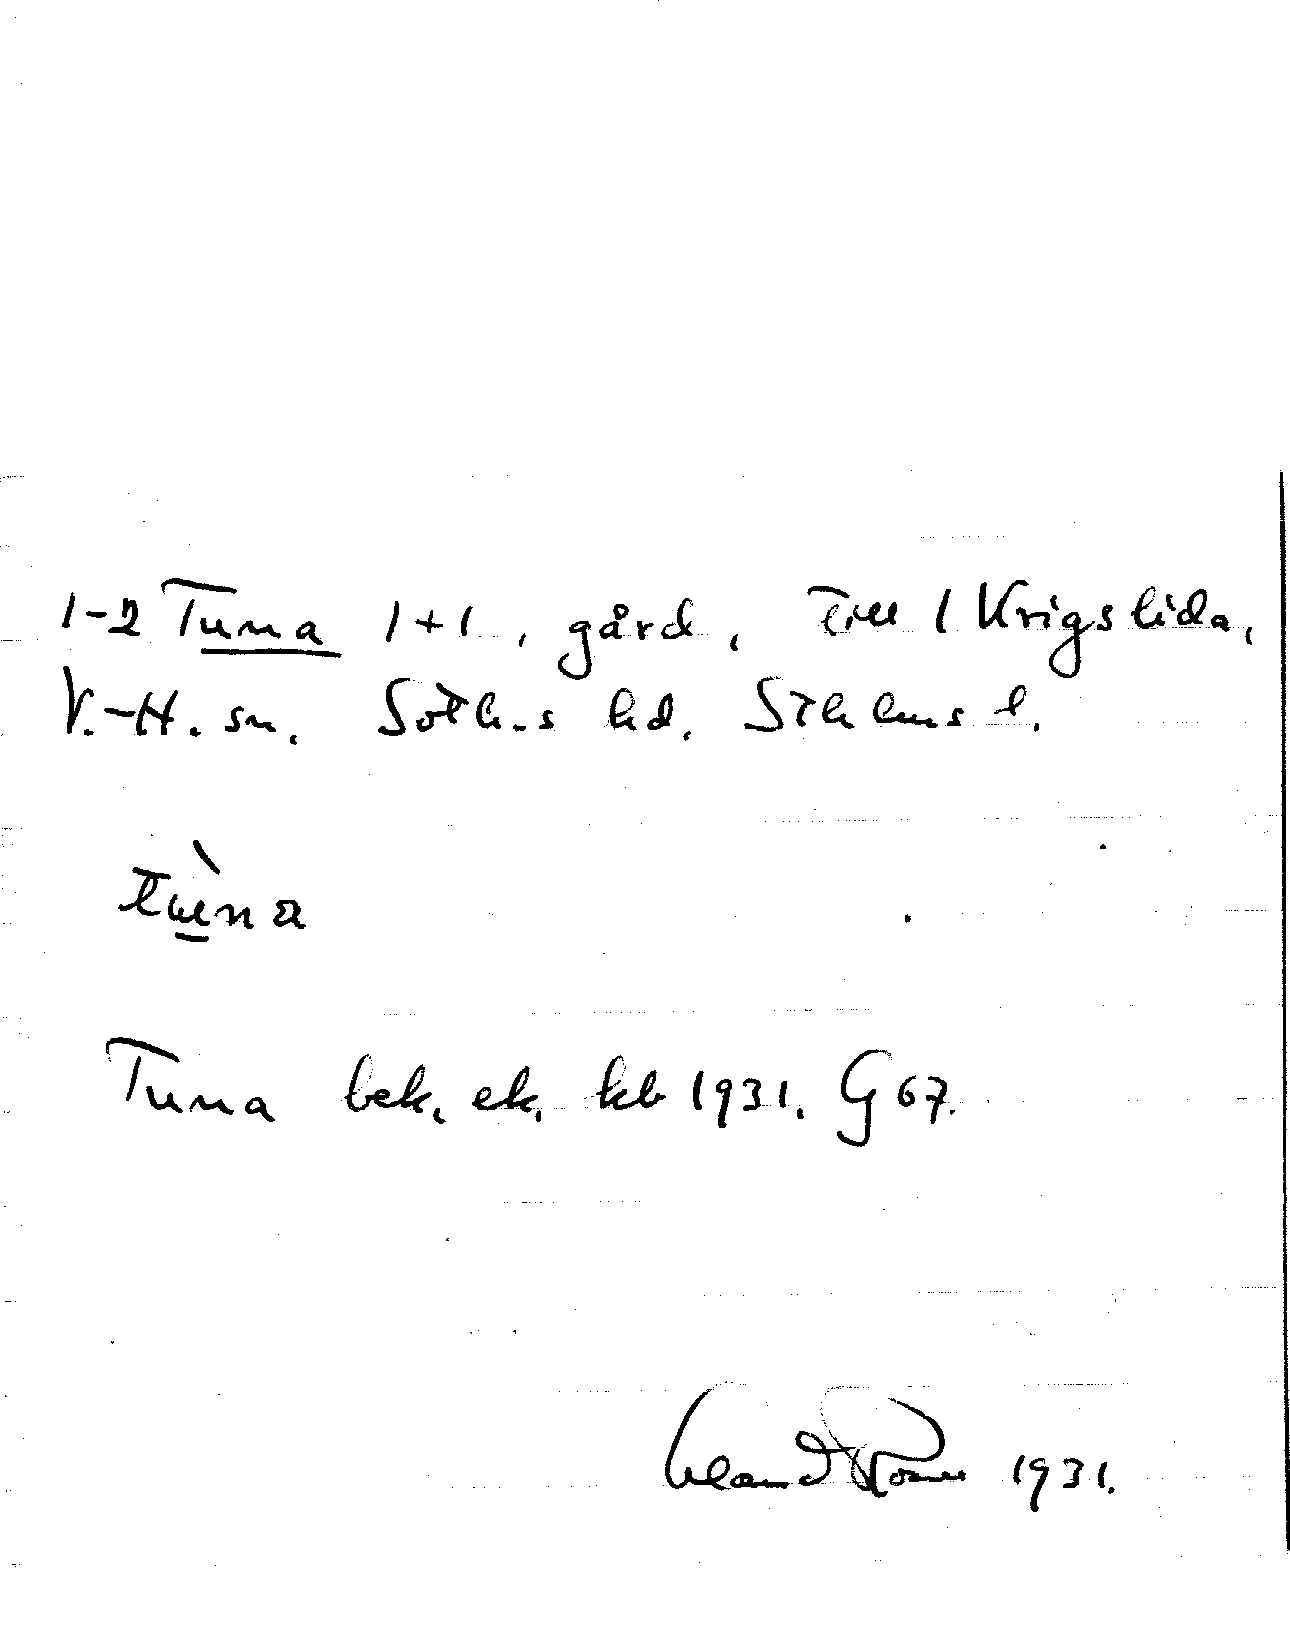 1-2 Tuna 1+1, gård, Till 1 Krigslida,
V.-H. sn. Soth-s hd. Sthlms l.
Tuna bek. ek. kb 1931. G 67.
1931.